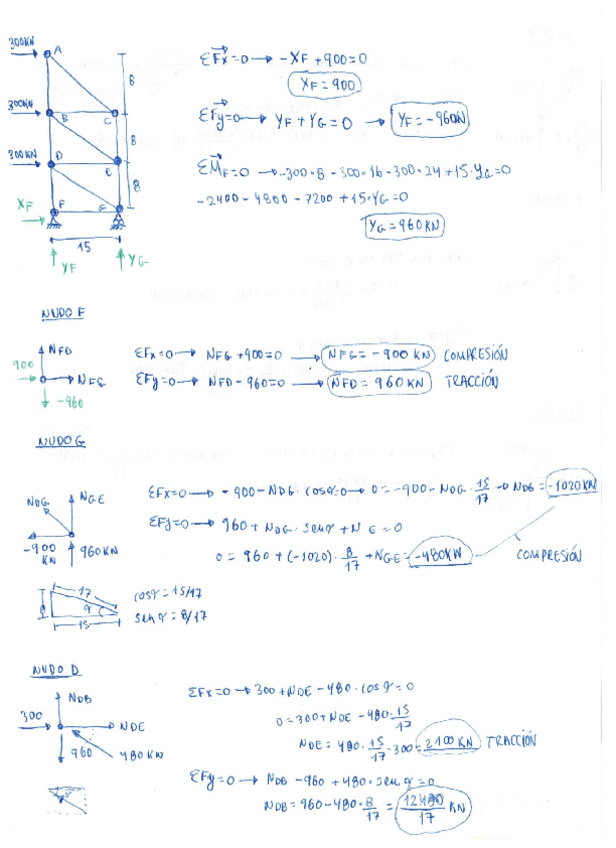 300KN
A
ΣFx=0 → -XF +900=0
XF = 900
8
300KN
B
C
ΣFy=0 → YF + YG = 0 → YF = -960KN
8
300KN
D
E
ΣMF=0 → -300·8 -300·16 -300·24 +15·YG=0
-2400 - 4800 - 7200 + 15·YG =0
8
XF
F
15
YG = 960KN
YF
YG
NUDO F
NFD
900
NFG
-960
ΣFx=0 → NFG +900=0 → NFG = -900 KN COMPRESIÓN
ΣFy=0 → NFD - 960=0 → NFD = 960KN TRACCIÓN
NUDO G
NDG
NGE
-900 KN
960KN
ΣFx=0 → -900 - NDG · cosα=0 → 0=-900 - NDG · 15/17 → NDG = -1020KN
ΣFy=0 → 960 + NDG · senα + N E = 0
0 = 960 + (-1020) · 8/17 + NGE = -480KN
COMPRESIÓN
17
8
α
15
cosα = 15/17
senα = 8/17
NUDO D
NDB
300
NDE
960
480KW
ΣFx=0 → 300 + NDE - 480 · cosα = 0
0=300 + NDE - 480 · 15/17
NDE = 480 · 15/17 - 300 = 2100 KN TRACCIÓN
ΣFy=0 → NDB - 960 + 480 · senα = 0
NDB = 960 - 480 · 8/17 = 12480/17 KN